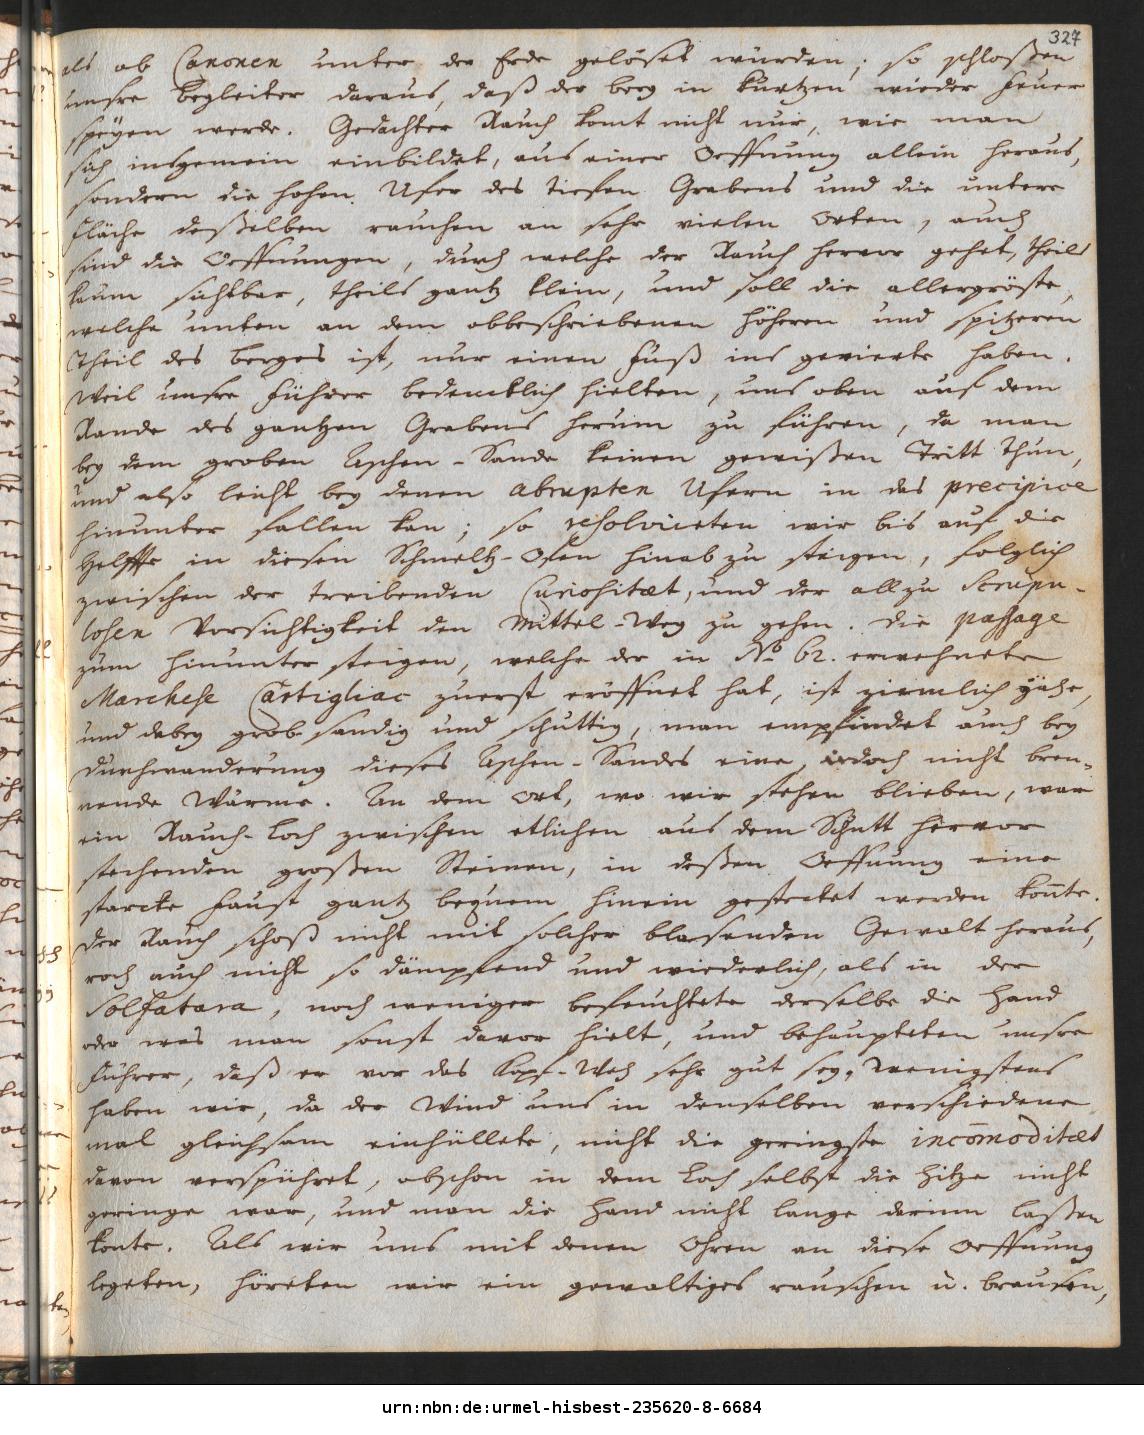 327
als ob Canonen unter der Erde gelöset würden; so schloßen
unsre Begleiter daraus, daß der berg in kurtzen wieder Feuer
speÿen werde. Gedachter Rauch komt nicht nur, wie man
sich insgemein einbildet, aus einer Oeffnung allein heraus,
sondern die hohen Ufer des tiefen Grabens und die untere
Fläche deßelben rauchen an sehr vielen Orten, auch
sind die Oeffnungen, durch welche der Rauch hervor gehet, theils
kaum sichtbar, theils gantz klein, und soll die allergröste,
welche unten an dem obbeschriebenen höheren und spitzeren
Theil des berges ist, nur einen Fuß ins gevierte haben.
Weil unsre Führer bedencklich hielten, uns oben auf dem
Rande des gantzen Grabens herum zu führen, da man
bey dem groben Aschen-Sande keinen gewißen Tritt thun,
und also leicht bey denen abrupten Ufern in das precipice
hinunter fallen kan; so resolvirten wir bis auf die
Helffte in diesen Schmeltz-Ofen hinab zu steigen, folglich
zwischen der treibenden Curiositæt, und der allzu scrupu-
losen Vorsichtigkeit den Mittel-Weg zu gehen. Die passage
zum hinunter steigen, welche der in No 62. erwehnete
Marchese Cartigliac zuerst eröffnet hat, ist ziemlich gähe,
und dabey grob sandig und schuttig, man empfindet auch bey
durchwanderung dieses Aschen-Sandes eine, iedoch nicht bren-
nende Wärme. An dem Ort, wo wir stehen blieben, war
ein Rauch-Loch zwischen etlichen aus dem Schutt hervor
stehenden großen Steinen, in deßen Oeffnung eine
starcke Faust gantz bequem hinein gestecket werden konte.
Der Rauch schoß nicht mit solcher blasenden Gewalt heraus,
roch auch nicht so dämpfend und wiederlich, als in der
Solfatara, noch weniger befeuchtete derselbe die Hand
oder was man sonst davor hielt, und behaupteten unsre
Führer, daß er vor das Kopf-Weh sehr gut sey, Wenigstens
haben wir, da der Wind uns in denselben verschiedene
mal gleichsam einhüllete, nicht die geringste incom̄oditæt
davon verspühret, obschon in dem Loch selbst die Hitze nicht
geringe war, und man die Hand nicht lange darinn laßen
konte. Als wir uns mit denen Ohren an diese Oeffnung
legeten, höreten wir ein gewaltiges rauschen u. brausen,
urn:nbn:de:urmel-hisbest-235620-8-6684